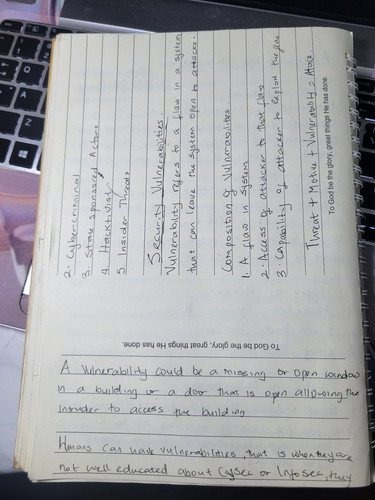 2. Cybercriminal
3. State sponsored Actors
4. Hacktivist
5. Insider Threats
Security Vulnerabilities
Vulnerability refers to a flaw in a system
that can leave the system open to attacks.
Composition of Vulnerabilities
1. A flaw in system
2. Access of attacker to that flaw
3. Capability of attacker to exploit the flaw
Threat + Motive + Vulnerability = Attack
To God be the glory, great things He has done.
To God be the glory, great things He has done.
A Vulnerability could be a missing or open window
in a building or a door that is open allowing the
intruder to access the building
Humans can have vulnerabilities, that is when they are
not well educated about Cysec or Infosec, they